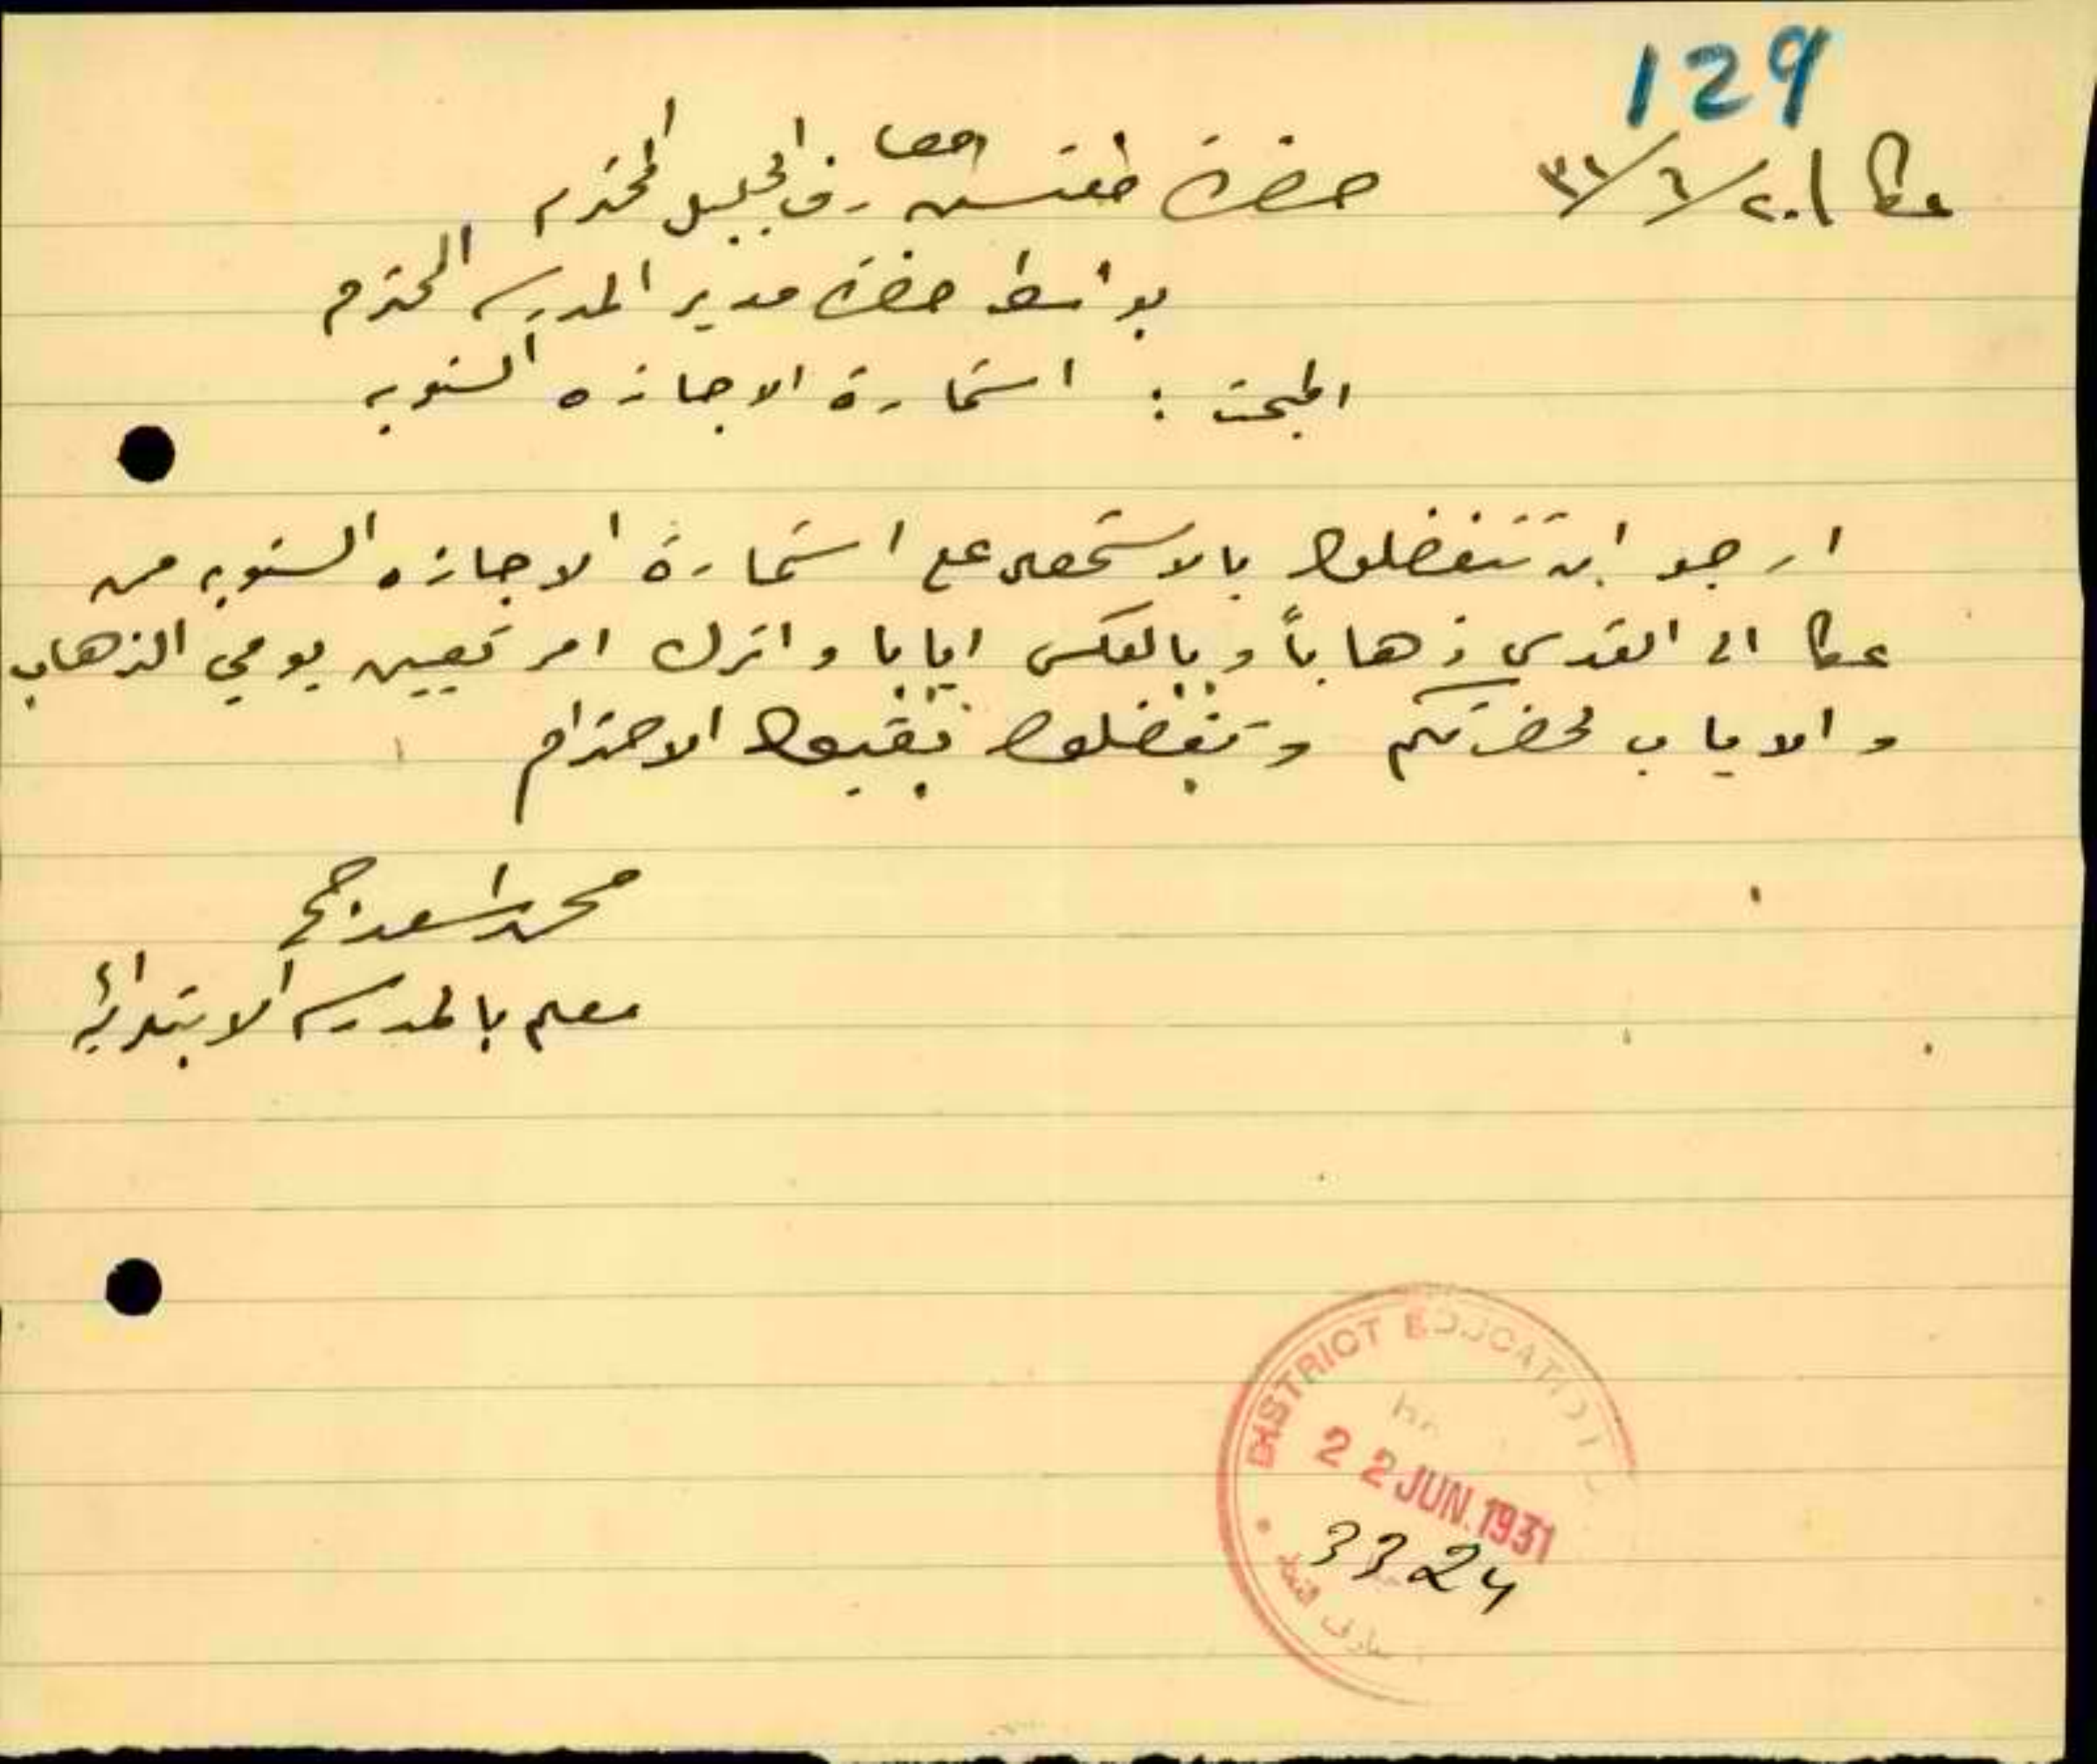 129
عكا ٢٠/٦/٣١
حضرة مفتش معارف الجليل المحترم
بواسطة حضرة مدير المدرسه المحترم
المبحث : استمارة الاجازه السنويه
ارجو ان تتفضلوا بالاستحصال على استمارة الاجازه السنويه من
عكا الى القدس ذهاباً وبالعكس ايابا واترك امر تعيين يومي الذهاب
والاياب لحضرتكم وتفضلوا بقبول الاحترام
محمد اسعد
معلم بالمدرسه الابتدائيه
DISTRICT EDUCATION
22 JUN. 1931
3324
معارف